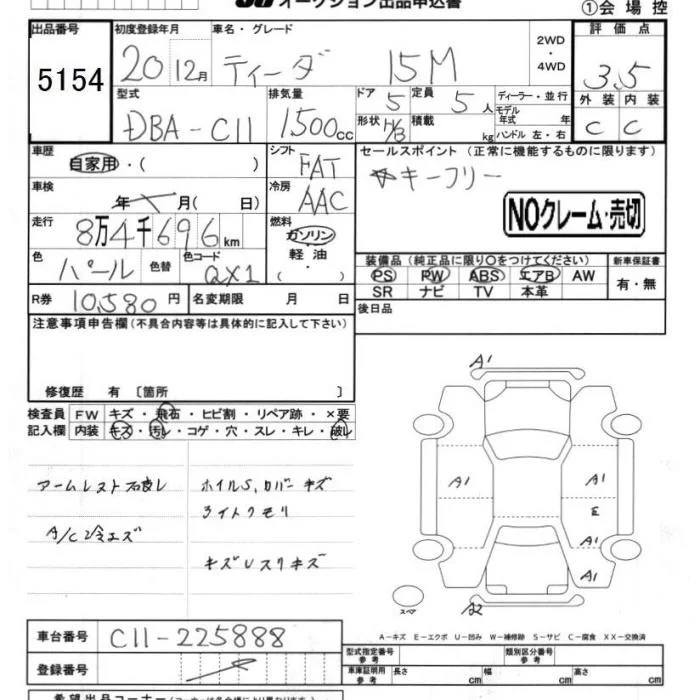 オークション出品申込書
①会場控
出品番号 初度登録年月 車名・グレード 2WD・4WD 評価点
5154 20 12月 ティーダ 15M 3.5
型式 排気量 ドア 定員 ディーラー・並行 外装 内装
DBA-C11 1500cc 5 5人 モデル年式 年 C C
形状 H/B 積載 kg ハンドル 左・右
車歴 自家用・( ) シフト FAT セールスポイント(正常に機能するものに限ります)
キーフリー
車検 年 月( 日) 冷房 AAC
NOクレーム・売切
走行 8万4千696km 燃料 ガソリン
軽油・( )
色 パール 色替 色コード QX1
装備品(純正品に限り○をつけてください) 新車保証書
PS PW ABS エアB AW 有・無
SR ナビ TV 本革
R券 10,580円 名変期限 月 日
後日品
注意事項申告欄(不具合内容等は具体的に記入して下さい)
修復歴 有〔箇所 〕
検査員 FW キズ・飛石・ヒビ割・リペア跡・×要
記入欄 内装 キズ・汚レ・コゲ・穴・スレ・キレ・破レ
アームレスト不良し ホイルS,カバーキズ
ライトクモリ
A/C冷エズ
キズUスリキズ
A1
A1 A1
E
A1
A1
スペア A2
A-キズ E-エクボ U-凹み W-補修跡 S-サビ C-腐食 XX-交換済
車台番号 C11-225888
型式指定番号 参考 類別区分番号 参考
登録番号
車庫証明用 参考 長さ cm 幅 cm 高さ cm
希望出品コーナー